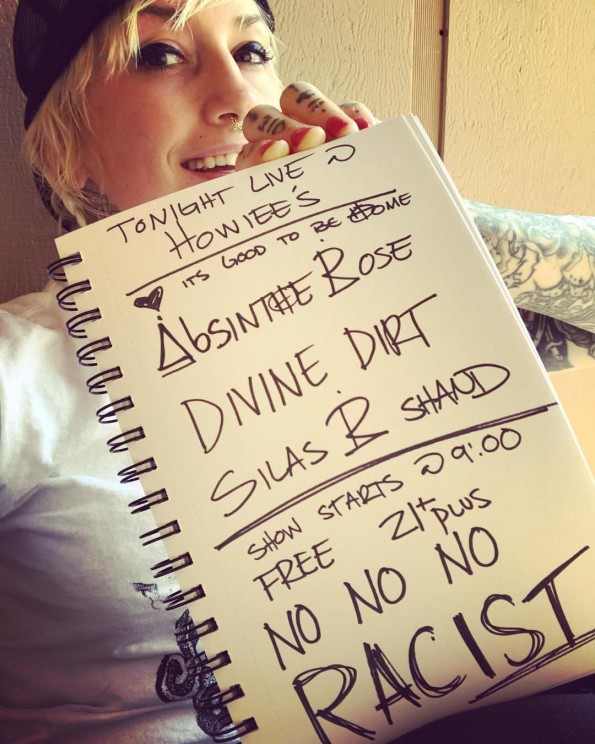 TONIGHT LIVE @
HOWIEE'S
ITS GOOD TO BE HOME
ABSINTHE ROSE
DIVINE DIRT
SILAS B SHAND
SHOW STARTS @ 9:00
FREE 21+ PLUS
NO NO NO
RACIST